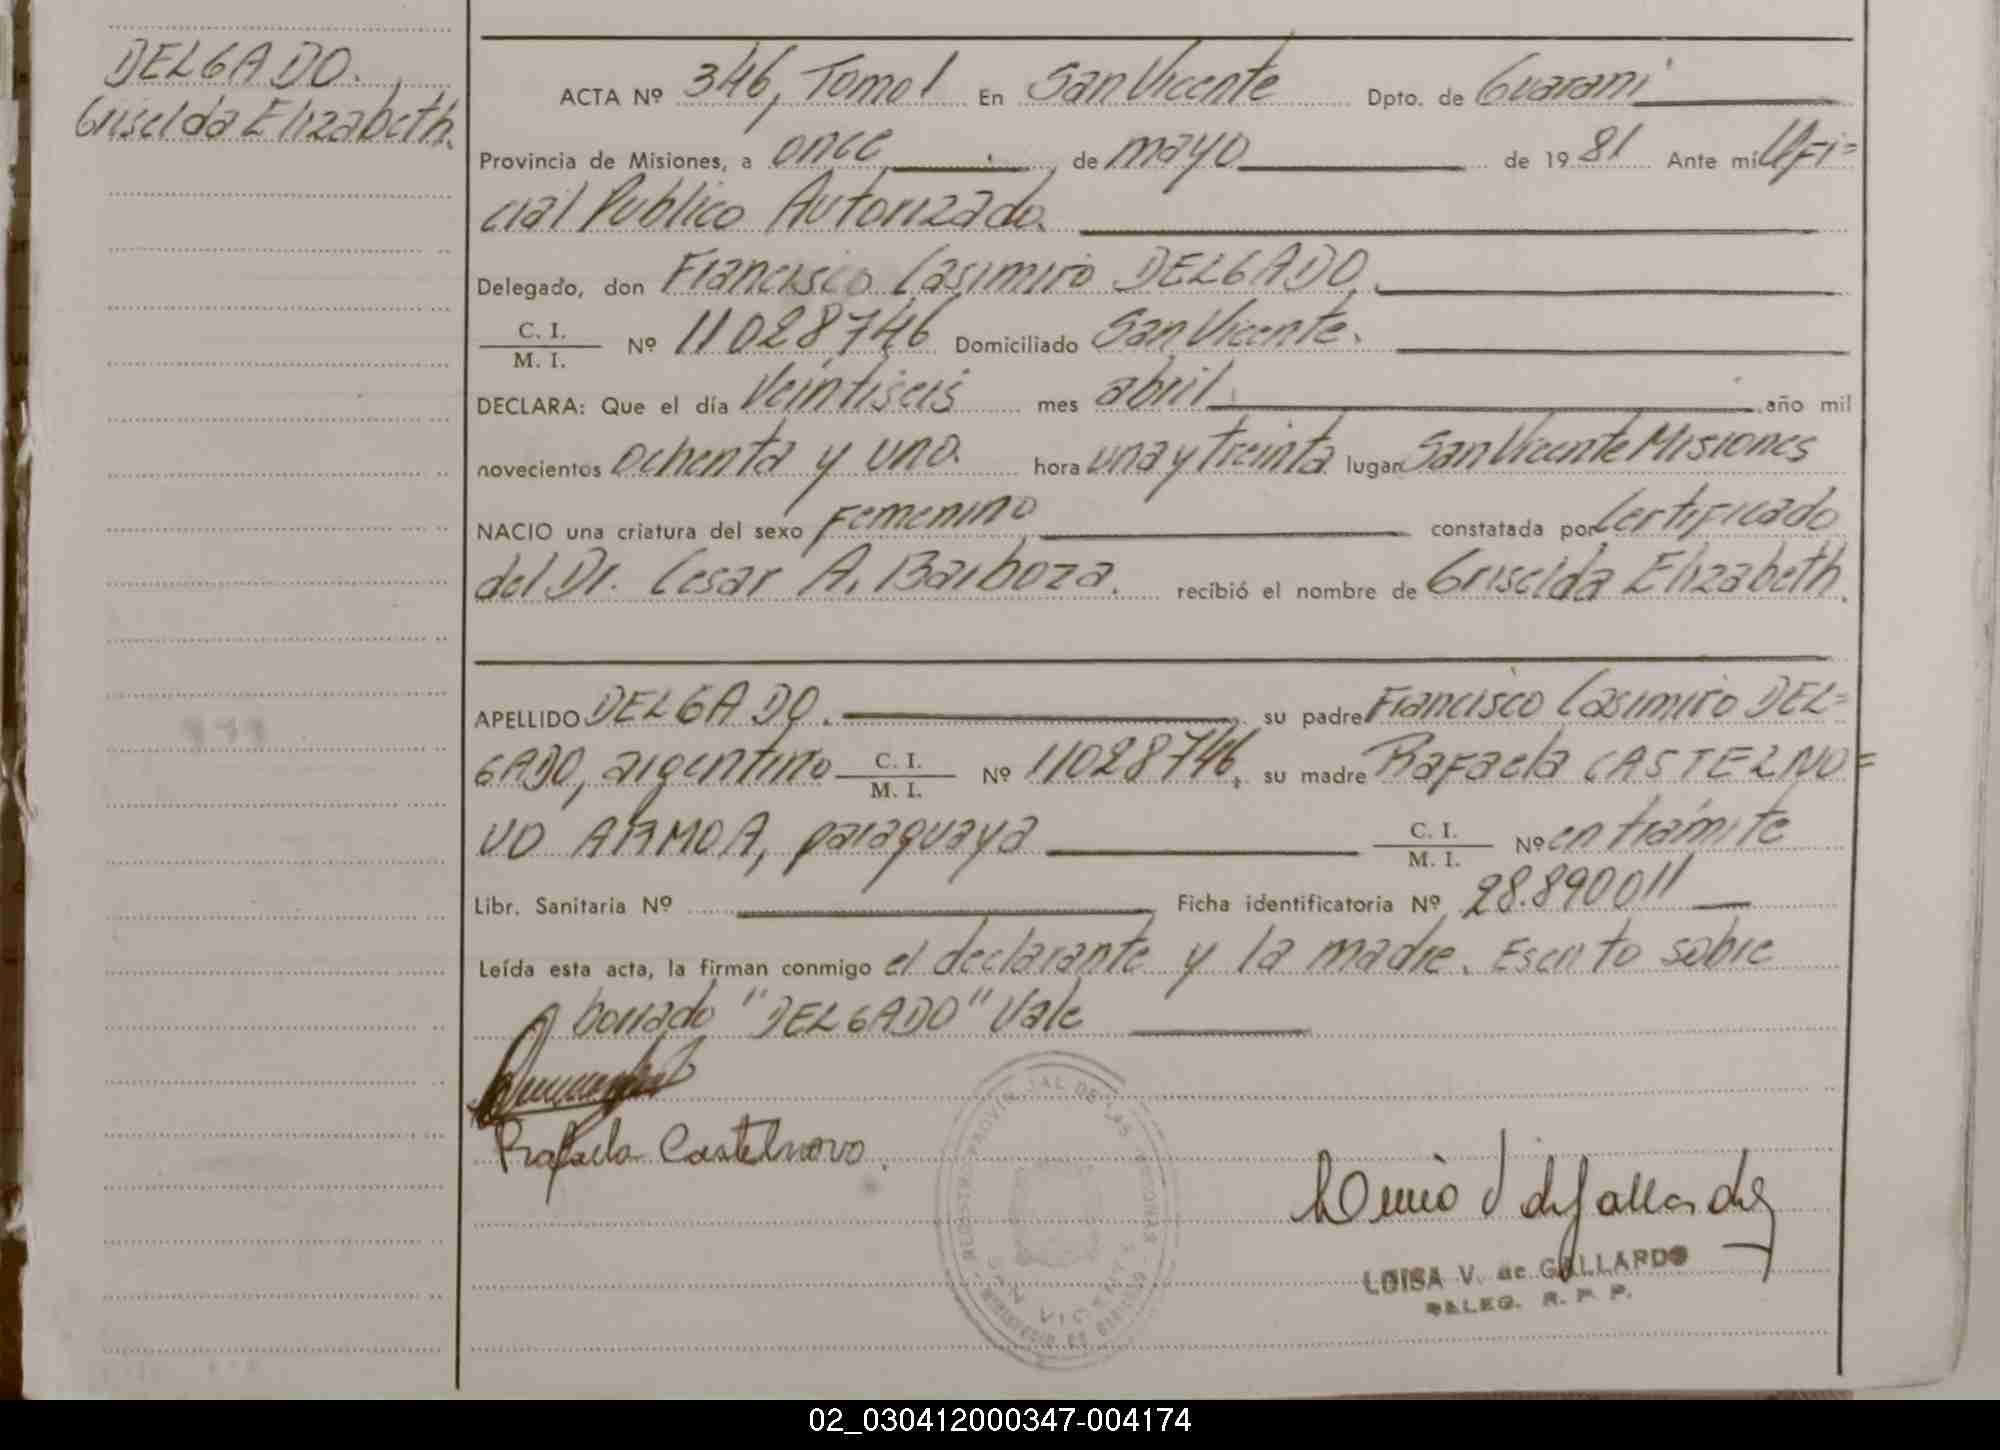 DELGADO.
Griselda Elizabeth.
ACTA Nº 346, Tomo I En San Vicente Dpto. de Guaraní
Provincia de Misiones, a once de mayo de 1981 Ante mí Ofi=
cial Público Autorizado.
Delegado, don Francisco Casimiro DELGADO.
C. I.
M. I. Nº 11028746 Domiciliado San Vicente.
DECLARA: Que el día veintiseis mes abril año mil
novecientos ochenta y uno. hora una y treinta lugar San Vicente Misiones
NACIO una criatura del sexo Femenino constatada por Certificado
del Dr. Cesar A. Barboza. recibió el nombre de Griselda Elizabeth.
APELLIDO DELGADO. su padre Francisco Casimiro DEL=
GADO, argentino C. I.
M. I. Nº 11028746, su madre Rafaela CASTELNO=
VO ARMOA, paraguaya C. I.
M. I. Nº en trámite
Libr. Sanitaria Nº Ficha identificatoria Nº 28.890011
Leída esta acta, la firman conmigo el declarante y la madre. Escrito sobre
borrado "DELGADO" Vale
Rafaela Castelnovo.
REGISTRO PROVINCIAL DE LAS PERSONAS
SAN VICENTE
LUISA V. de GALLARDO
DELEG. R. P. P.
02_030412000347-004174